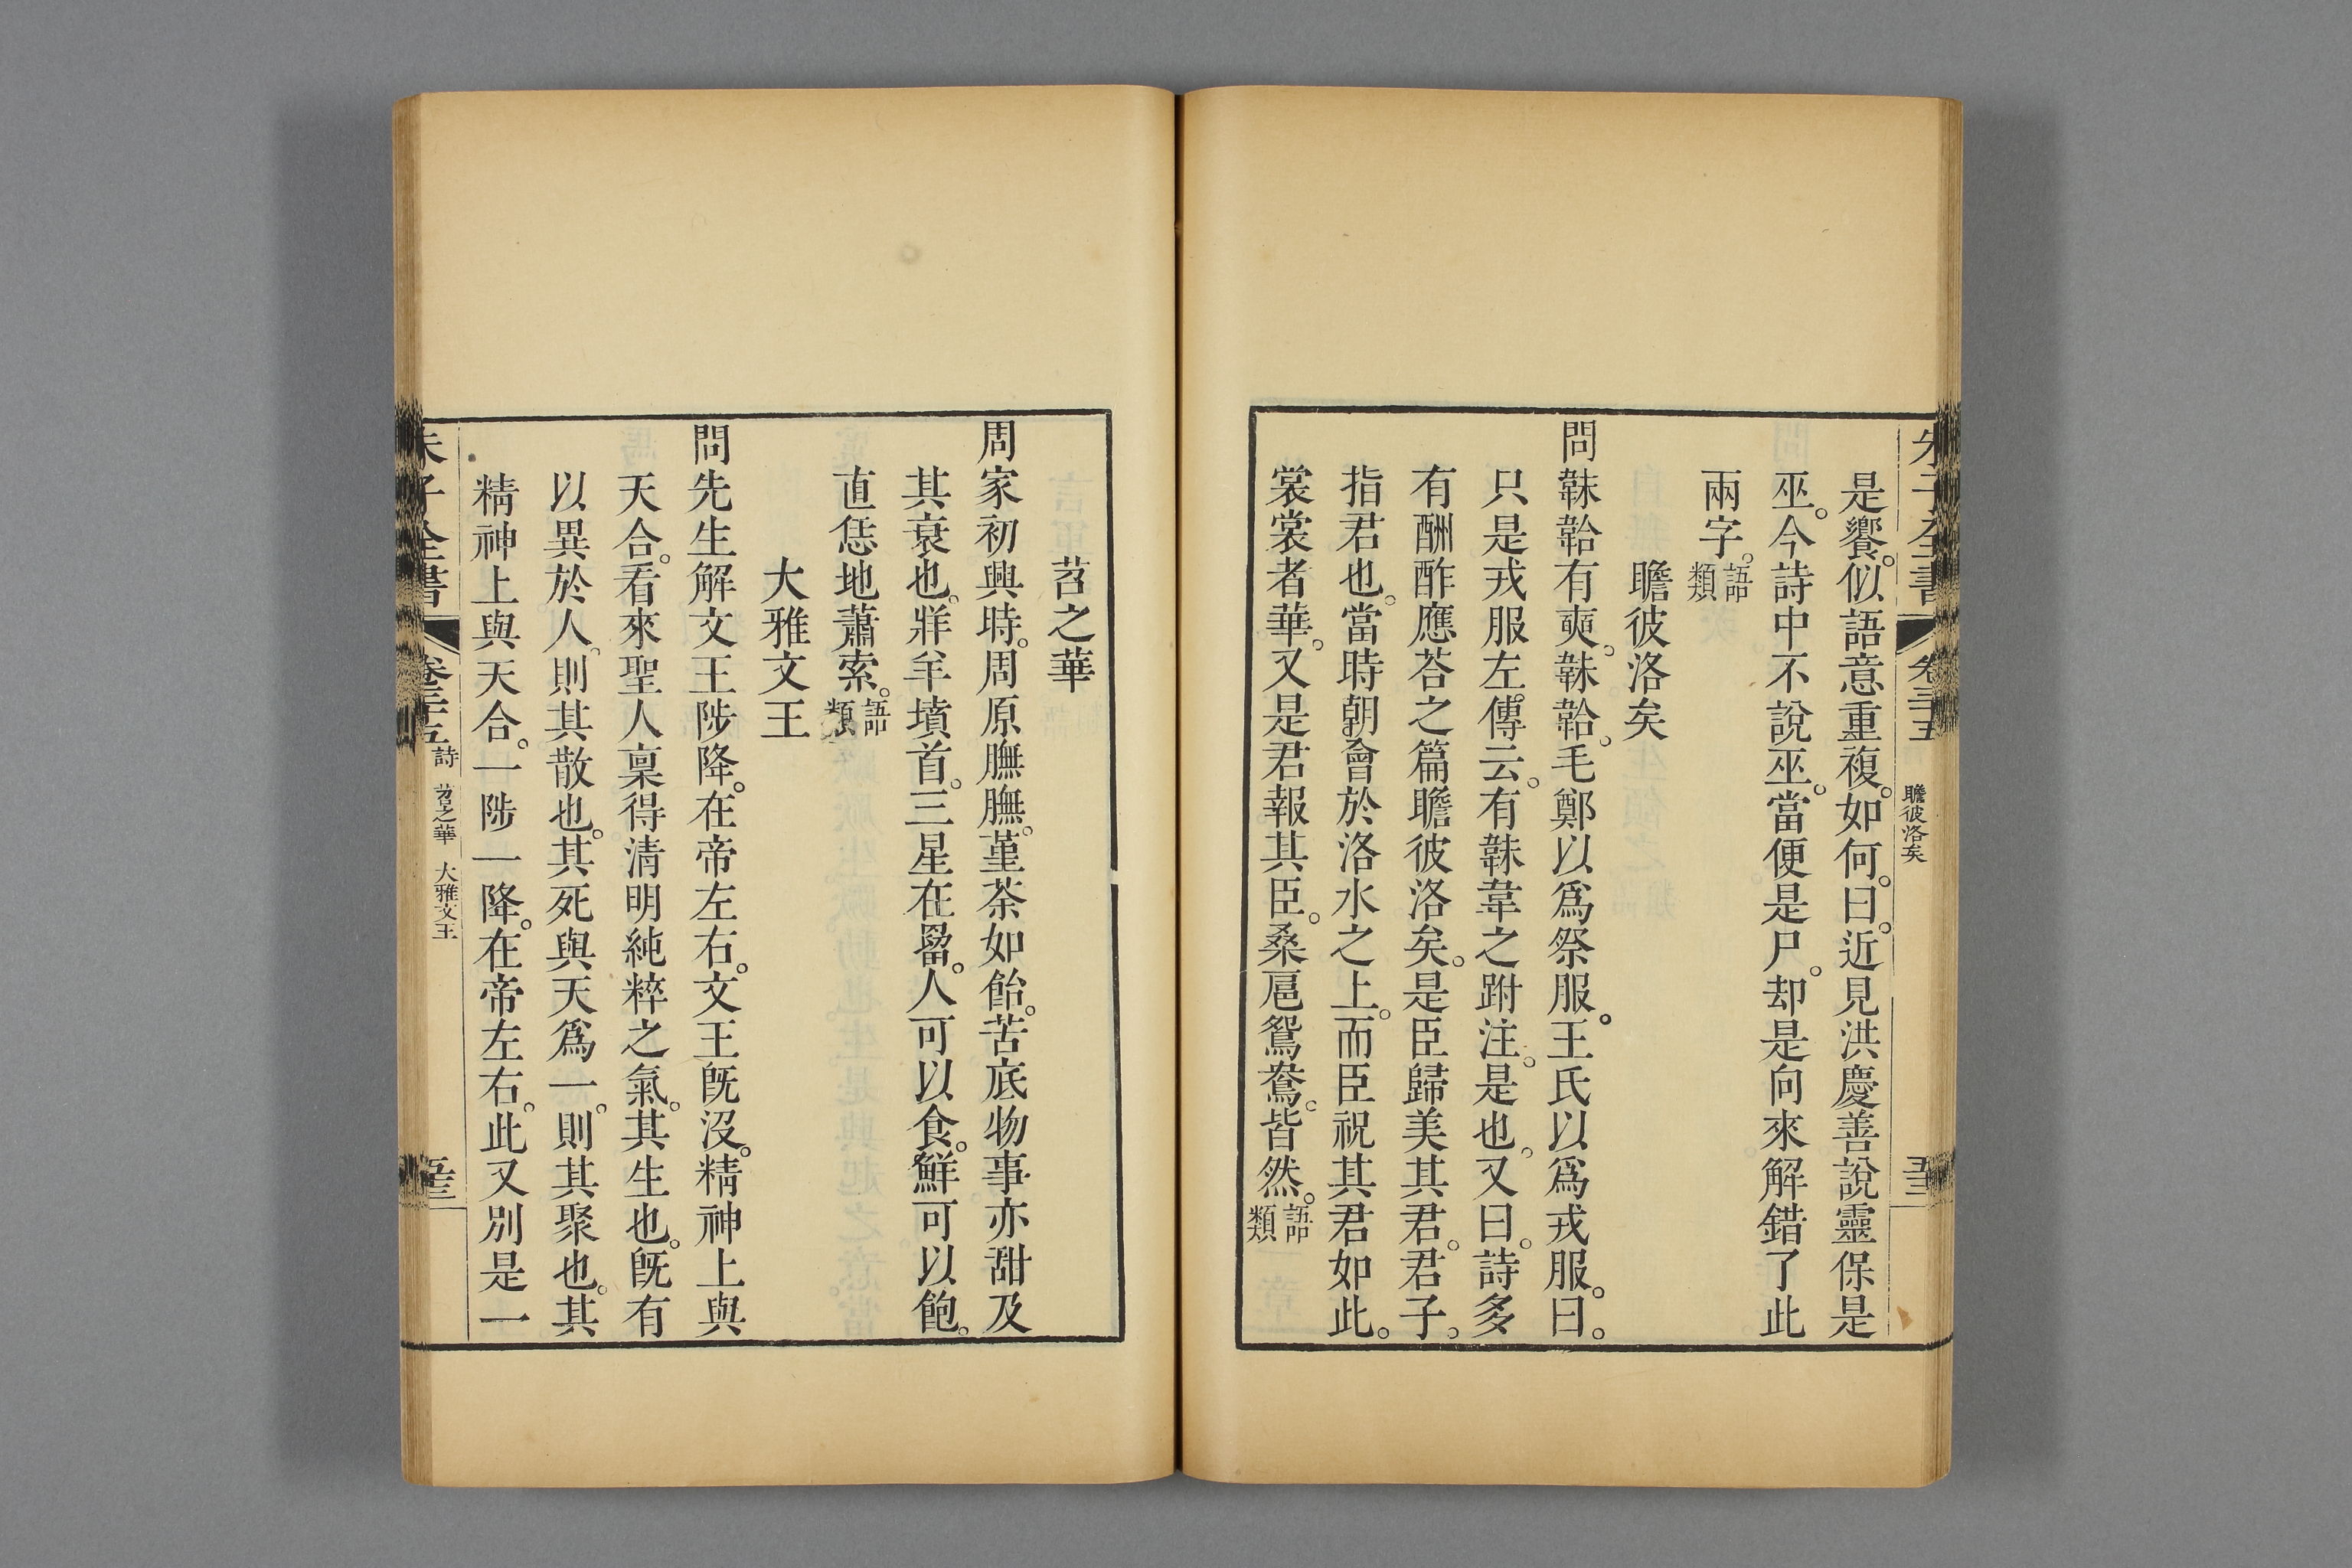 朱子全書 卷三十五 瞻彼洛矣
是饗。似語意重複。如何。曰。近見洪慶善說靈保是
巫。今詩中不說巫。當便是尸。却是向來解錯了此
兩字。語類
瞻彼洛矣
問韎韐有奭。韎韐。毛鄭以爲祭服。王氏以爲戎服。曰。
只是戎服左。傳云。有韎韋之跗注。是也。又曰。詩多
有酬酢應荅之篇瞻彼洛矣。是臣歸美其君。君子。
指君也。當時朝會於洛水之上。而臣祝其君如此。
裳裳者華。又是君報其臣。桑扈鴛鴦。皆然。語類
苕之華
周家初興時。周原膴膴。堇荼如飴。苦底物事亦甜及
其衰也。牂羊墳首。三星在罶。人可以食。鮮可以飽。
直恁地蕭索。語類
大雅文王
問先生解文王陟降。在帝左右。文王旣沒。精神上與
天合。看來聖人稟得淸明純粹之氣。其生也。旣有
以異於人。則其散也。其死與天爲一。則其聚也。其
精神上與天合。一陟一降。在帝左右。此又別是一
朱子全書 卷三十五 詩 苕之華 大雅文王